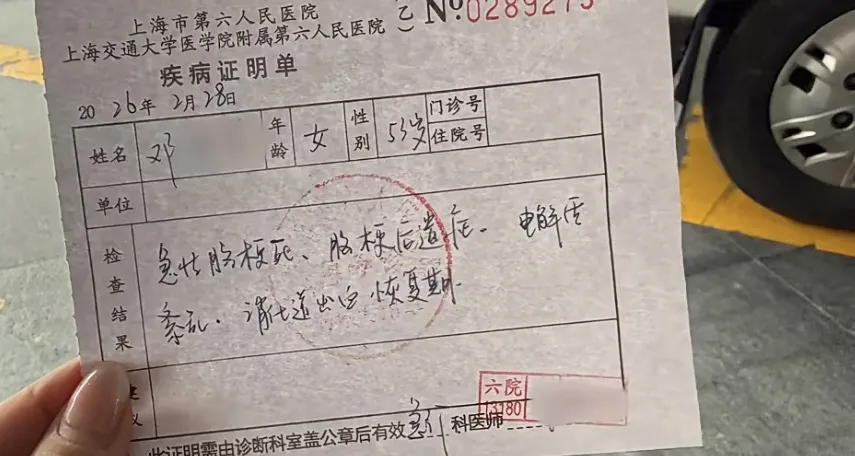 上海市第六人民医院
上海交通大学医学院附属第六人民医院
(乙) №0289275
疾病证明单
2026年2月28日
姓名 邓 年龄 女 性别 53岁 门诊号 住院号
单位
检查结果
急性脑梗死、脑梗后遗症、电解质
紊乱、消化道出血恢复期
六院
3180
此证明需由诊断科室盖公章后有效 科医师